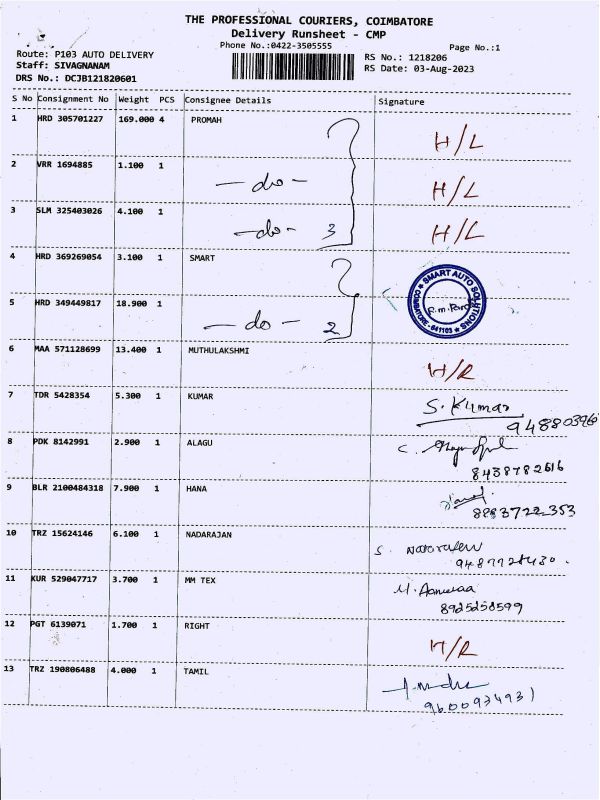 THE PROFESSIONAL COURIERS, COIMBATORE
Delivery Runsheet - CMP
Phone No.:0422-3505555
Page No.:1
Route: P103 AUTO DELIVERY
RS No.: 1218206
Staff: SIVAGNANAM
RS Date: 03-Aug-2023
DRS No.: DCJB121820601
S No Consignment No Weight PCS Consignee Details Signature
1 HRD 305701227 169.000 4 PROMAH H/L
2 VRR 1694885 1.100 1 -do- H/L
3 SLM 325403026 4.100 1 -do- 3 H/L
4 HRD 369269054 3.100 1 SMART
SMART AUTO SOLUTIONS
COIMBATORE - 641103
5 HRD 349449817 18.900 1 -do- 2
6 MAA 571128699 13.400 1 MUTHULAKSHMI H/R
7 TDR 5428354 5.300 1 KUMAR S. Kumar
8 PDK 8142991 2.900 1 ALAGU
8438782616
9 BLR 2100484318 7.900 1 HANA
10 TRZ 15624146 6.100 1 NADARAJAN
11 KUR 529047717 3.700 1 MM TEX
8925258599
12 PGT 6139071 1.700 1 RIGHT H/R
13 TRZ 190806488 4.000 1 TAMIL
9600934931